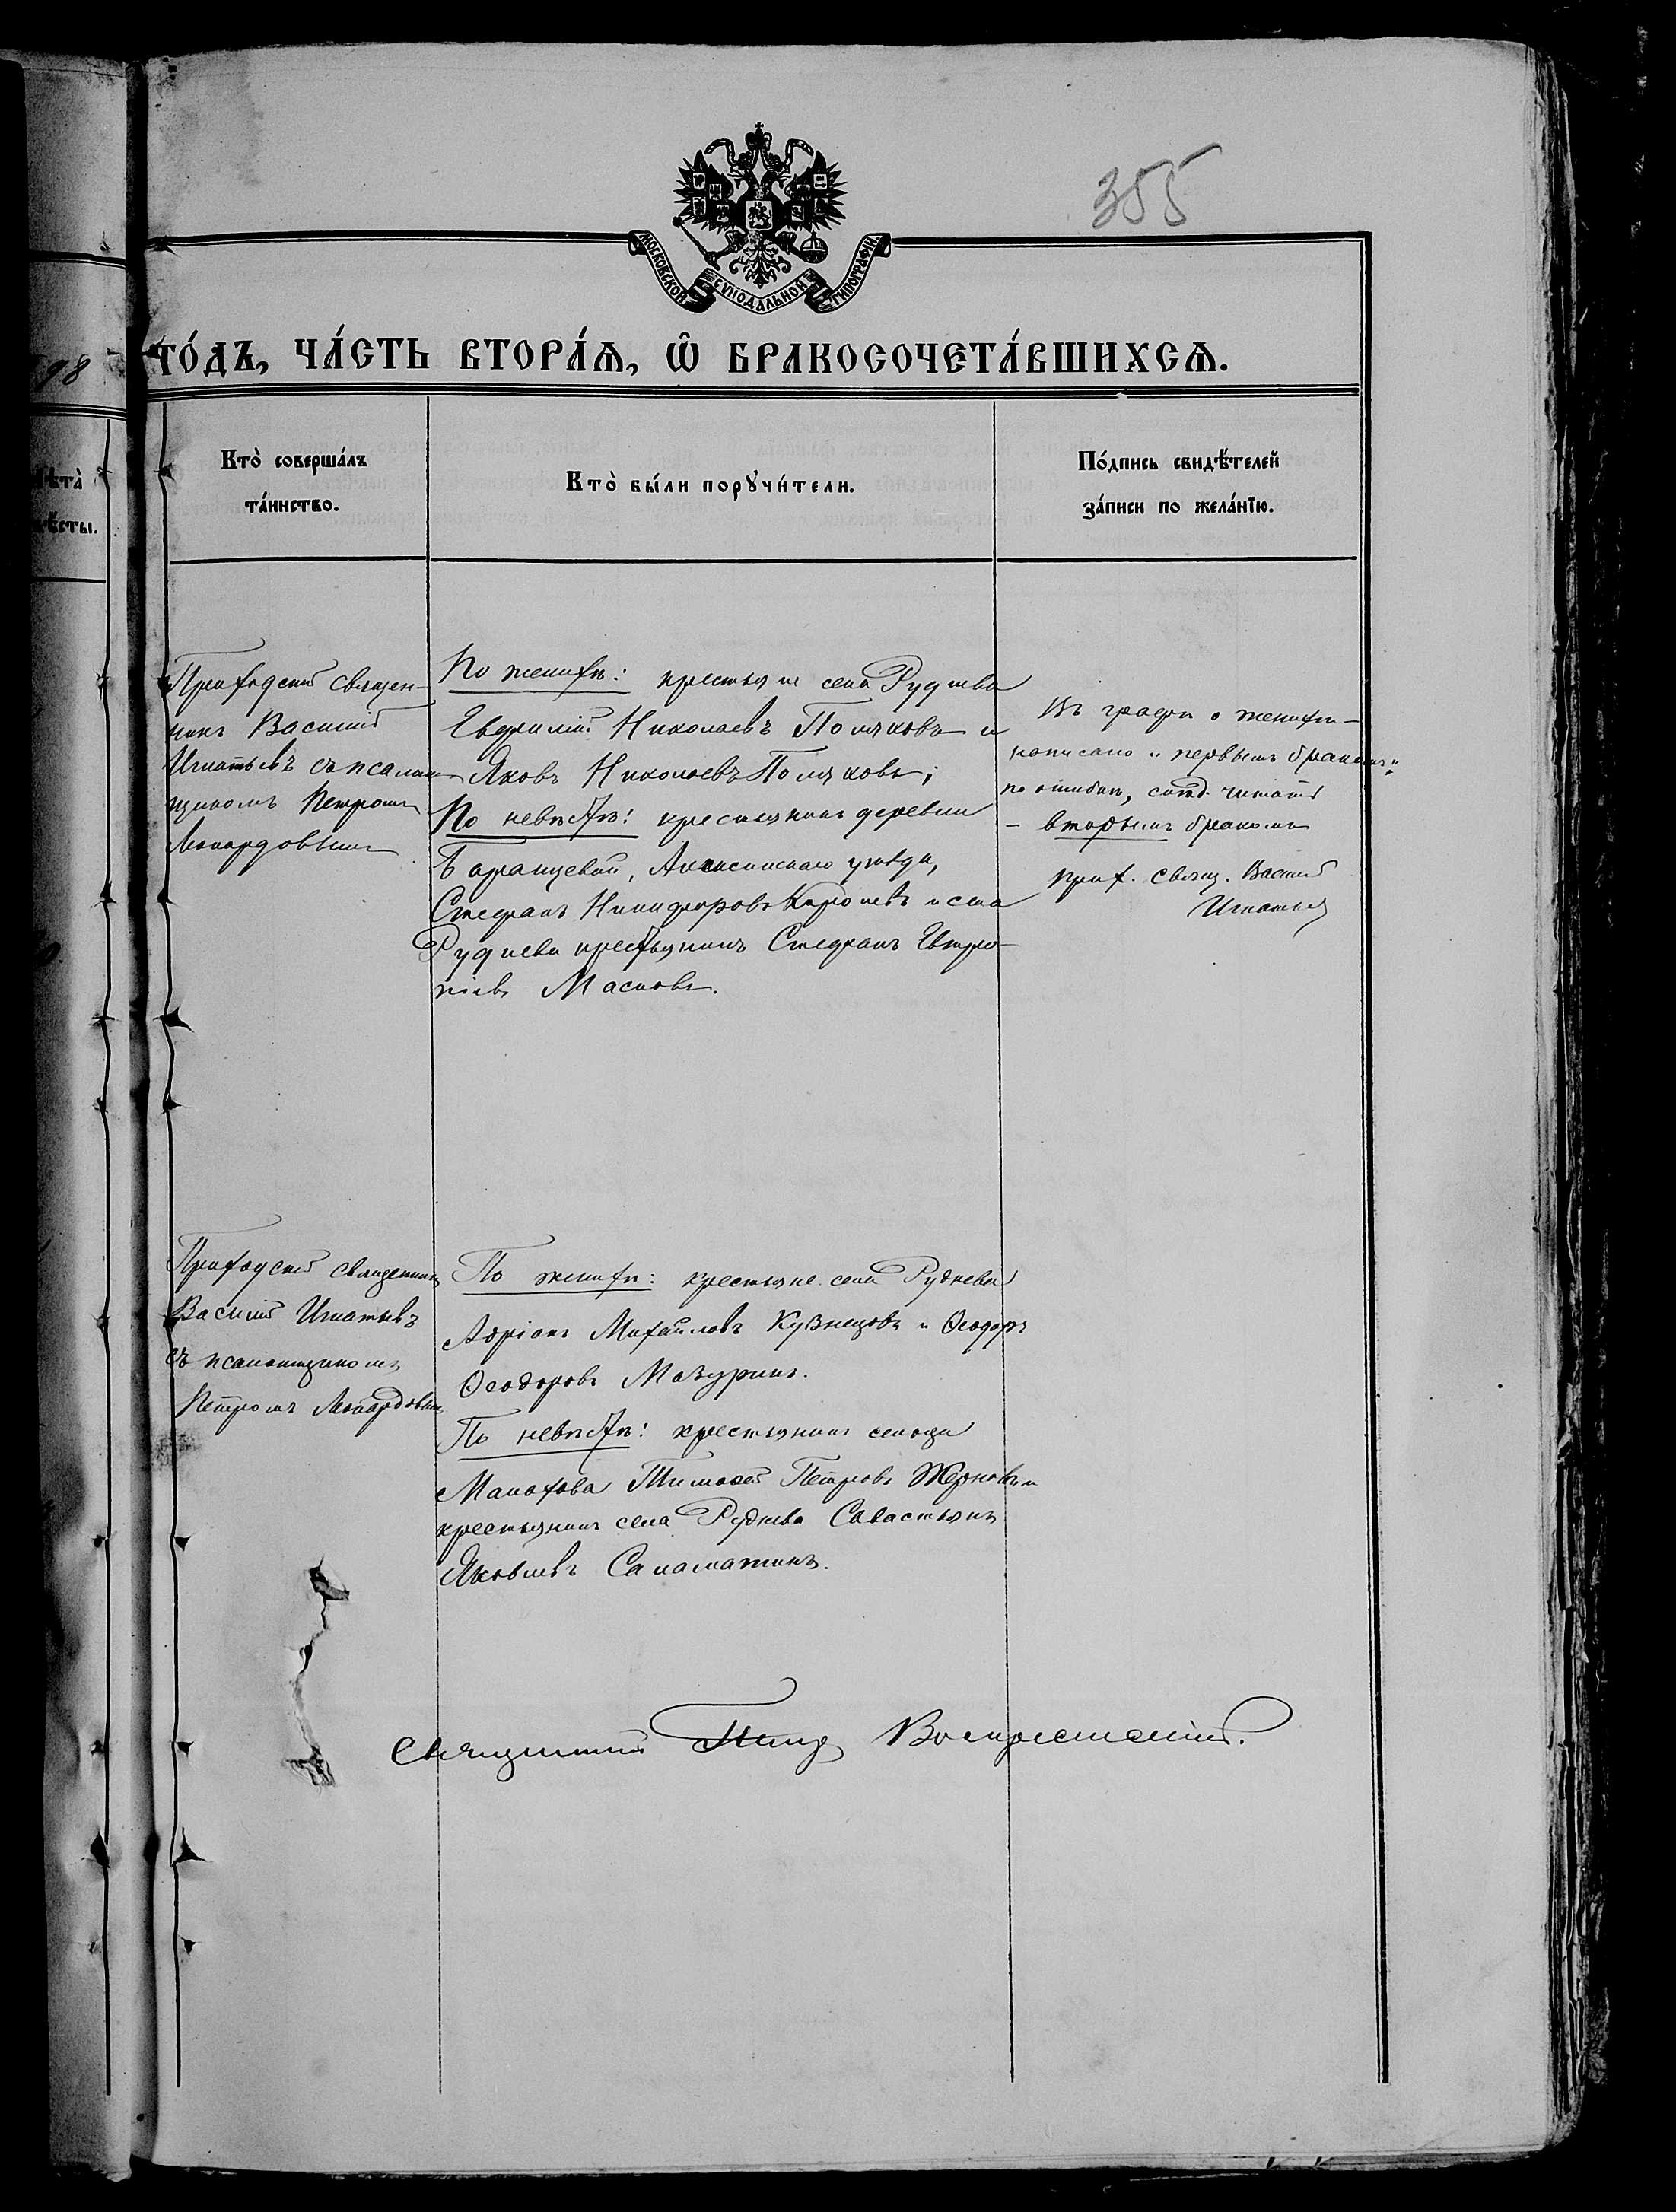 355
МОСКОВСКОЙ СѴНОДАЛЬНОЙ ТИПОГРАФІИ
98
го́дъ, ча́сть втора́ѧ, ѡ҆ бракосочета́вшихсѧ.
лѣта̀
невѣсты.
Кто̀ соверша́лъ
та́инство.
Кто̀ бы́ли порꙋчи́тели.
По́дпись свидѣ́телей
за́писи по жела́нїю.
Приходскій священ-
никъ Василій
Игнатьевъ съ псалом
щикомъ Петромъ
Леопардовымъ
По женихѣ: крестьяне села Руднева
Евфимій Николаевъ Поляковъ и
Яковъ Николаевъ Поляковъ;
По невѣстѣ: крестьянинъ деревни
Баранцевой, уѣзда,
Стефанъ Никифоровъ и села
Руднева крестьянинъ Стефанъ Евтро-
піевъ Масловъ.
Въ графѣ о женихѣ –
написано „первымъ бракомъ“
по ошибкѣ, слѣд. читать
– вторымъ бракомъ
прих. свящ. Василій
Игнатьев
Приходскій священникъ
Василій Игнатьевъ
съ псаломщикомъ
Петромъ Леопардовым
По женихѣ: крестьяне села Руднева
Адріанъ Михайловъ Кузнецовъ и Ѳеодоръ
Ѳеодоровъ Мазуринъ.
По невѣстѣ: крестьянинъ сельца
Малахова Тимоѳей Петровъ Жерновъ и
крестьянинъ села Руднева Савастьянъ
Яковлевъ Саламатинъ.
Священникъ Петръ Воскресенскій.